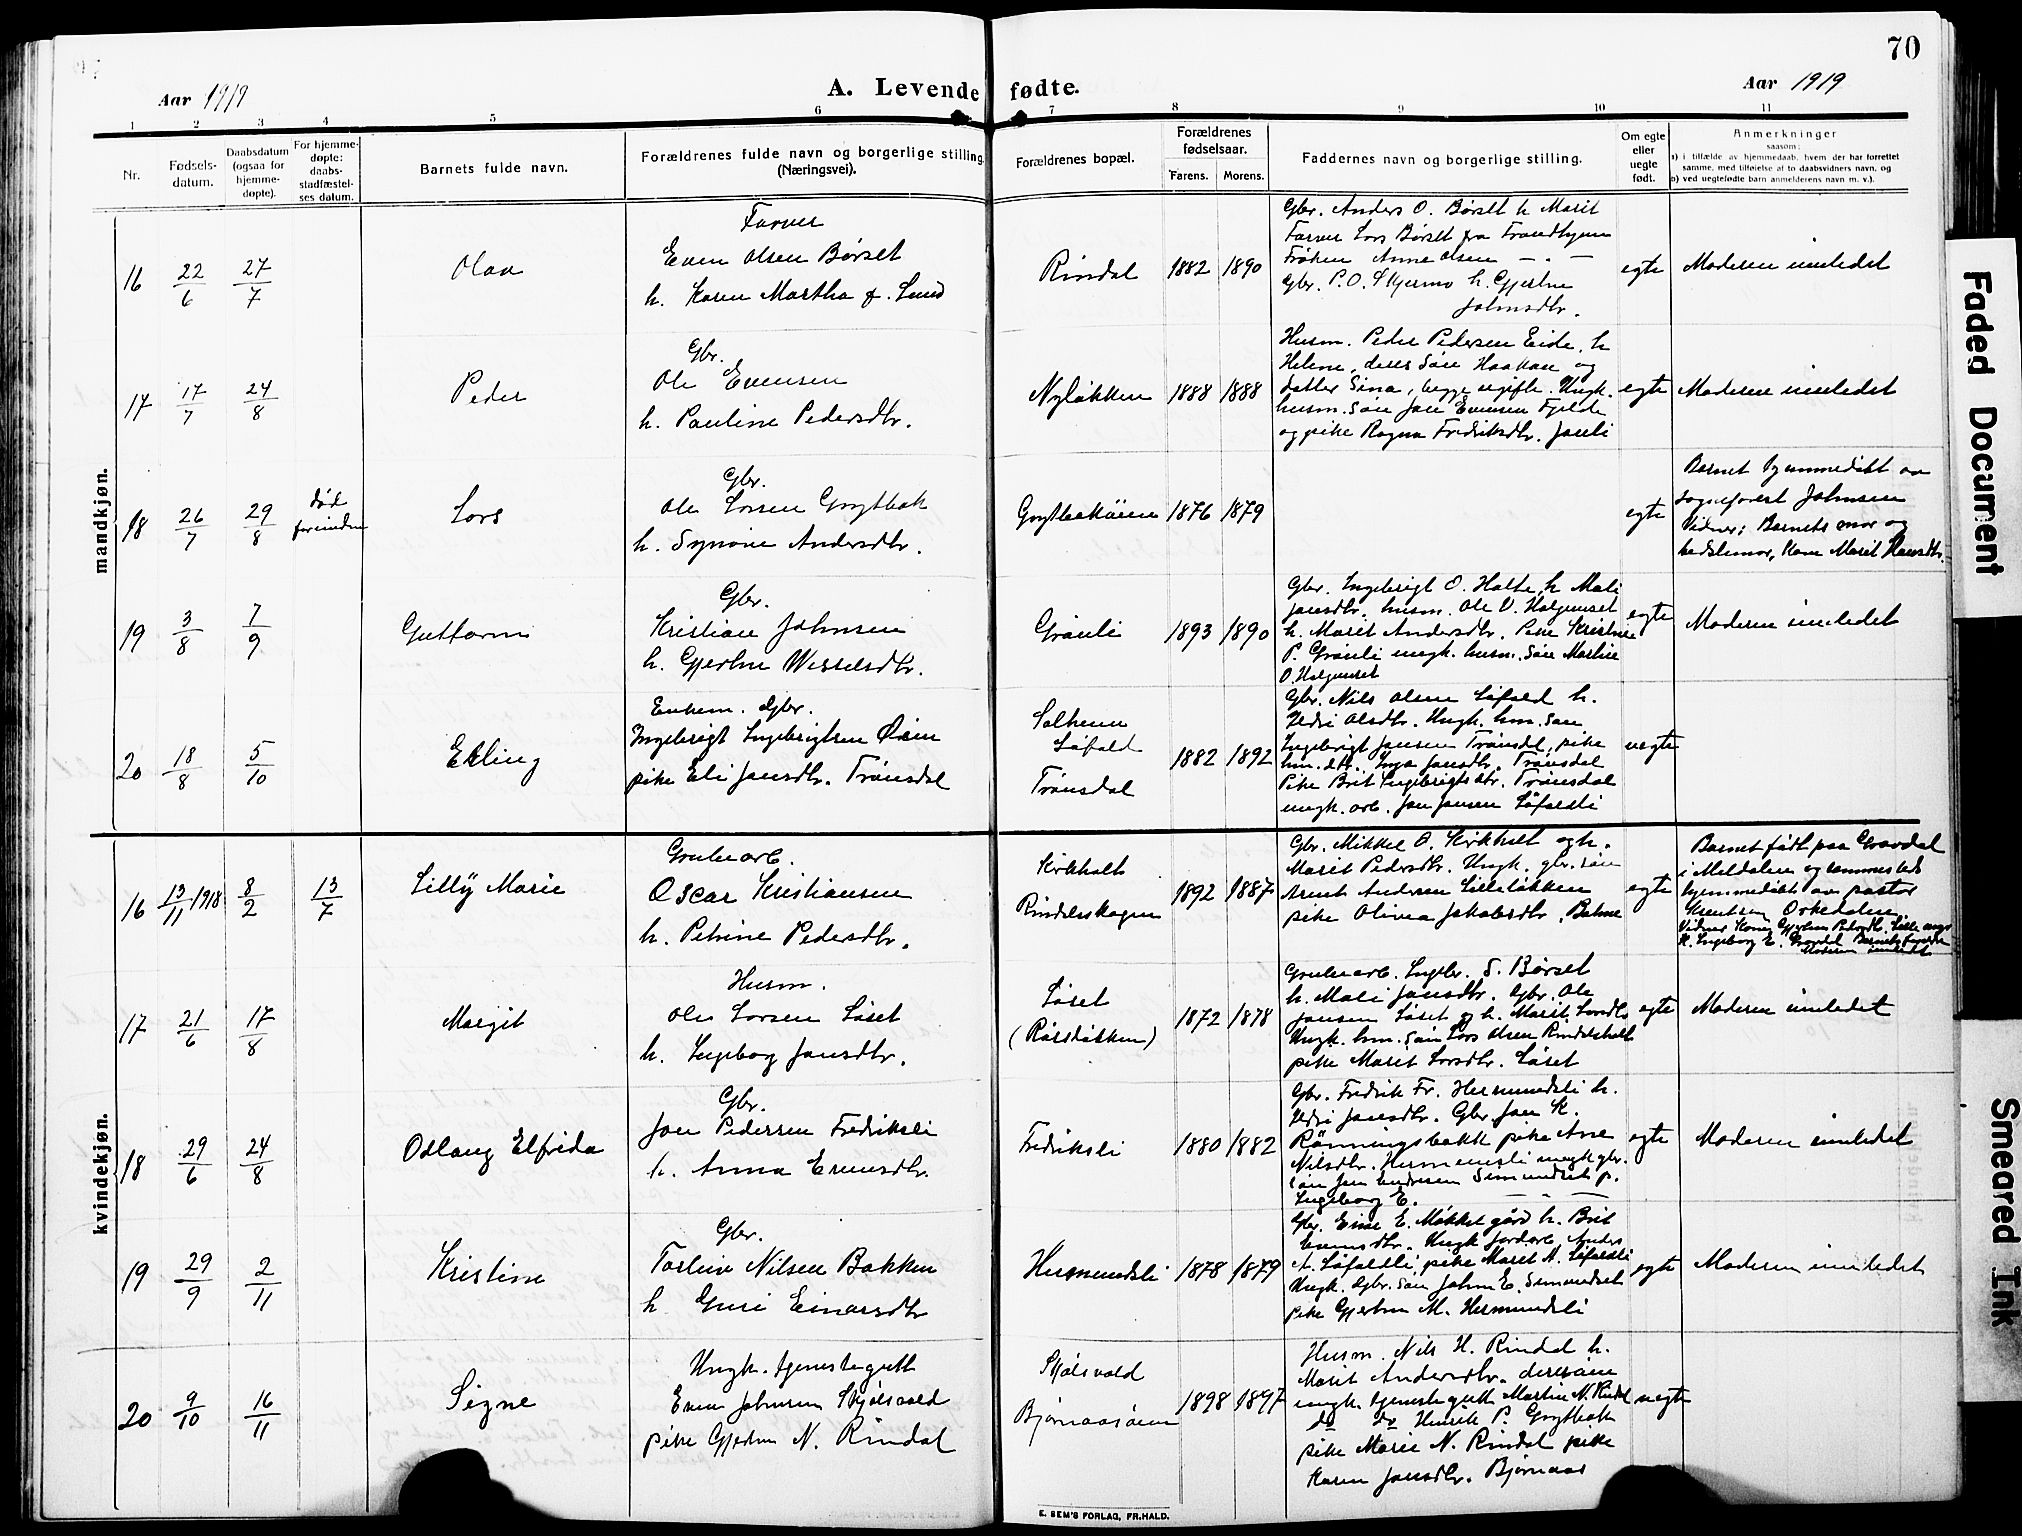 70
Aar 1919
A. Levende fødte.
Aar 1919
1 2 3 4 5 6 7 8 9 10 11
Nr.
Fødsels-
datum.
Daabsdatum
(ogsaa for
hjemme-
døpte).
For hjemme-
døpte:
daabs-
stadfæstel-
ses datum.
Barnets fulde navn.
Forældrenes fulde navn og borgerlige stilling
(Næringsvei).
Forældrenes bopæl.
Forældrenes
fødselsaar.
Farens. Morens.
Faddernes navn og borgerlige stilling.
Om egte
eller
uegte
født.
Anmerkninger
saasom:
a) i tilfælde av hjemmedaab, hvem der har forrettet
samme, med tilføielse af to daabsvidners navn, og
b) ved uegtefødte barn anmelderens navn m. v.).
mandkjøn.
16 22/6 27/7
Olav
Farver
Even Olsen Børset
h. Karen Martha f. Lund
Rindal
1882 1890
Gbr. Anders O. Børset h. Marit
Farver Lars Børset fra Trondhjem
Frøken Anne Olsen — " —
Gbr. P. O. Skjermo h. Gjertru
Johnsdtr.
egte
Moderen innledet
17 17/7 24/8
Peder
Gbr.
Ole Evensen
h. Pauline Pedersdtr.
Nyløkken
1888 1888
Husm. Peder Pedersen Eide, h.
Helene, deres søn Haakon og
datter Sina, begge ugifte. Ungk.
husm. søn Jon Evensen Fjelde
og pike Ragna Fredriksdtr. Jonli
egte
Moderen innledet
18 26/7 29/8
død
forinden
Lars
Gbr.
Ole Larsen Grytbak
h. Synøve Andersdtr.
Grytbakøien
1876 1879
egte
Barnet hjemmedøbt av
sogneprest Johnsen
Vidner: Barnets mor og
bedstemor, Kone Marit Hansdtr.
19 3/8 7/9
Guttorm
Gbr.
Kristian Johnsen
h. Gjertru Wesselsdtr.
Grønli
1893 1890
Gbr. Ingebrigt O. Holte, h. Mali
Jonsdtr. husm. Ole O. Halgunset
h. Marit Andersdtr. Pike Kristine
P. Grønli ungk. husm. søn Martin
O. Halgunset
egte
Moderen innledet
20 18/8 5/10
Erling
Enkem. Gbr.
Ingebrigt Ingebrigtsen Øien
pike Eli Jonsdtr. Trønsdal
Solheim
Løfald
Trønsdal
1882 1892
Gbr. Nils Olsen Løfald h.
Ildri Olsdtr. Ungk. hm. søn
Ingebrigt Jonsen Trønsdal, pike
hm. dtr. Inga Jonsdtr. Trønsdal
Pike Brit Ingebrigtsdtr. Trønsdal
ungk. arb. Jon Jonsen Løfaldli
uegte
kvindekjøn.
16 13/11 1918 8/2 13/7
Lilly Marie
Grubearb.
Oscar Kristiansen
h. Petrine Pedersdtr.
Kirkholt
Rindalsskogen
1892 1887
Gbr. Mikkel O. Kirkholt og h.
Marit Pedersdtr. Ungk. gbr. søn
Arnt Andersen Lilleløkken
pike Olina Jakobsdtr. Bolme
egte
Barnet født paa Gravdal
i Meldalen og sammesteds
hjemmedøbt av pastor
Knutsen Orkedalen.
Vidner Kone Gjertru Pedersdtr.
K. Ingeborg E. Gravdal
Moderen innledet
17 21/6 17/8
Margit
Husm.
Ole Larsen Løset
h. Ingeborg Jonsdtr.
Løset
1872 1878
Grubearb. Ingbr. S. Børset
h. Mali Jonsdtr. Gbr. Ole
Jonsen Løset og h. Marit Larsdtr.
Ungk. hm. søn Lars Olsen Rindalsholt
pike Marit Larsdtr. Løset
egte
Moderen innledet
18 29/6 24/8
Odlaug Elfrida
Gbr.
Jon Pedersen Fredriksli
h. Anna Evensdtr.
Fredriksli
1880 1882
Gbr. Fredrik Fr. Hermundsli h.
Ildri Jonsdtr. Gbr. Jon K.
Rønningsbakk pike Ane
Nilsdtr. Hermundsli ungk. gbr.
søn Jon Andersen Simundset p.
Ingeborg E. — " —
egte
Moderen innledet
19 29/9 2/11
Kristine
Gbr.
Torleiv Nilsen Bakken
h. Guri Einarsdtr
Hermundsli
1878 1879
Gbr. Einar E. Møkkelgård h. Brit
Evensdtr. Ungk. jordarb. Anders
A. Løfaldli, pike Marit A. Løfaldli
Ungk. Gbr. søn John E. Simundset
pike Gjertru M. Hermundsli
egte
Moderen innledet
20 9/10 16/11
Signe
Ungk. tjenestegutt
Even Johnsen Skjølsvold
pike Gjertru N. Rindal
Skjølsvold
Bjørnaasøien
1898 1897
Husm. Nils H. Rindal h.
Marit Andersdtr. deres søn
ungk. tjenestegutt Martin N. Rindal
do do Henrik P. Grytbak
pike Marie N. Rindal pike
Karen Jonsdtr. Bjørnaas
uegte
E. SEM'S FORLAG, FR.HALD.
Faded Document
Smeared Ink